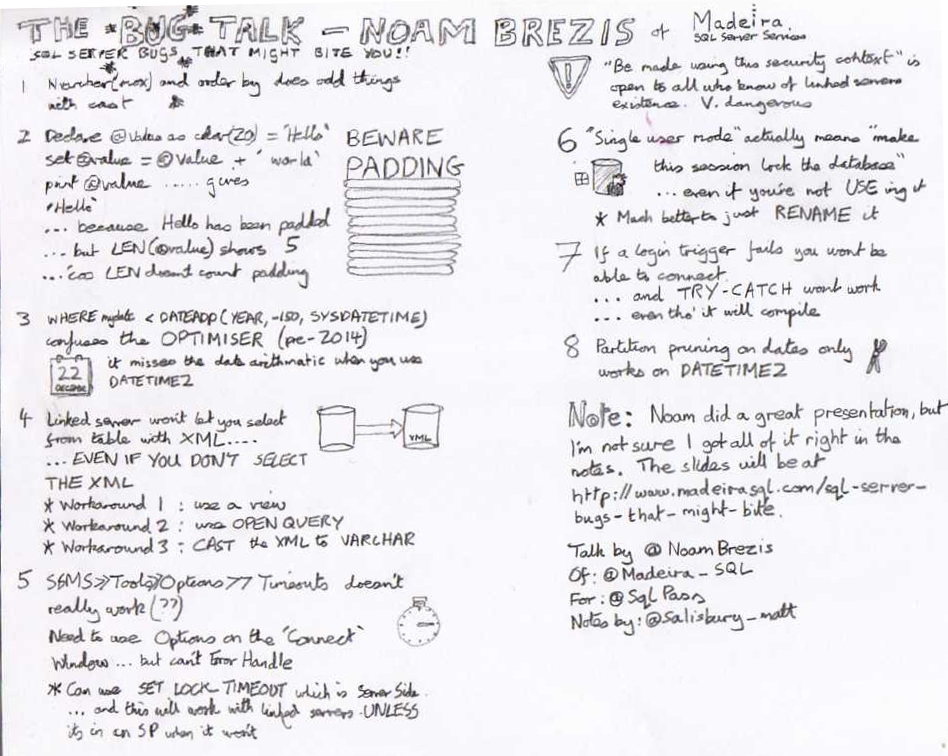 THE BUG TALK – NOAM BREZIS of Madeira
SQL Server Services
SQL SERVER BUGS THAT MIGHT BITE YOU!!
1 Nvarchar(max) and order by does odd things
with cast
2 Declare @Value as char(20) = 'Hello'
set @value = @Value + ' world'
print @value ..... gives
'Hello'
... because Hello has been padded
... but LEN(@value) shows 5
... 'cos LEN doesn't count padding
BEWARE
PADDING
3 WHERE mydate < DATEADD(YEAR, -150, SYSDATETIME)
confuses the OPTIMISER (pre-2014)
22
DECEMBER
it misses the date arithmatic when you use
DATETIME2
4 Linked server won't let you select
from table with XML....
... EVEN IF YOU DON'T SELECT
THE XML
XML
* Workaround 1 : use a view
* Workaround 2 : use OPEN QUERY
* Workaround 3 : CAST the XML to VARCHAR
5 SSMS>>Tools>>Options>>Timeouts doesn't
really work (??)
Need to use Options on the "Connect"
Window ... but can't Error Handle
* Can use SET LOCK_TIMEOUT which is Server Side.
... and this will work with linked servers UNLESS
its in an SP when it won't
! "Be made using this security context" is
open to all who know of linked servers
existence. V. dangerous
6 "Single user mode" actually means "make
this session lock the database"
... even if you're not USE ing it
* Much better to just RENAME it
7 If a login trigger fails you wont be
able to connect.
... and TRY-CATCH wont work
... even tho' it will compile
8 Partition pruning on dates only
works on DATETIME2
Note: Noam did a great presentation, but
I'm not sure I got all of it right in the
notes. The slides will be at
http://www.madeirasql.com/sql-server-
bugs-that-might-bite.
Talk by @NoamBrezis
Of: @Madeira_SQL
For: @SqlPass
Notes by: @Salisbury_matt